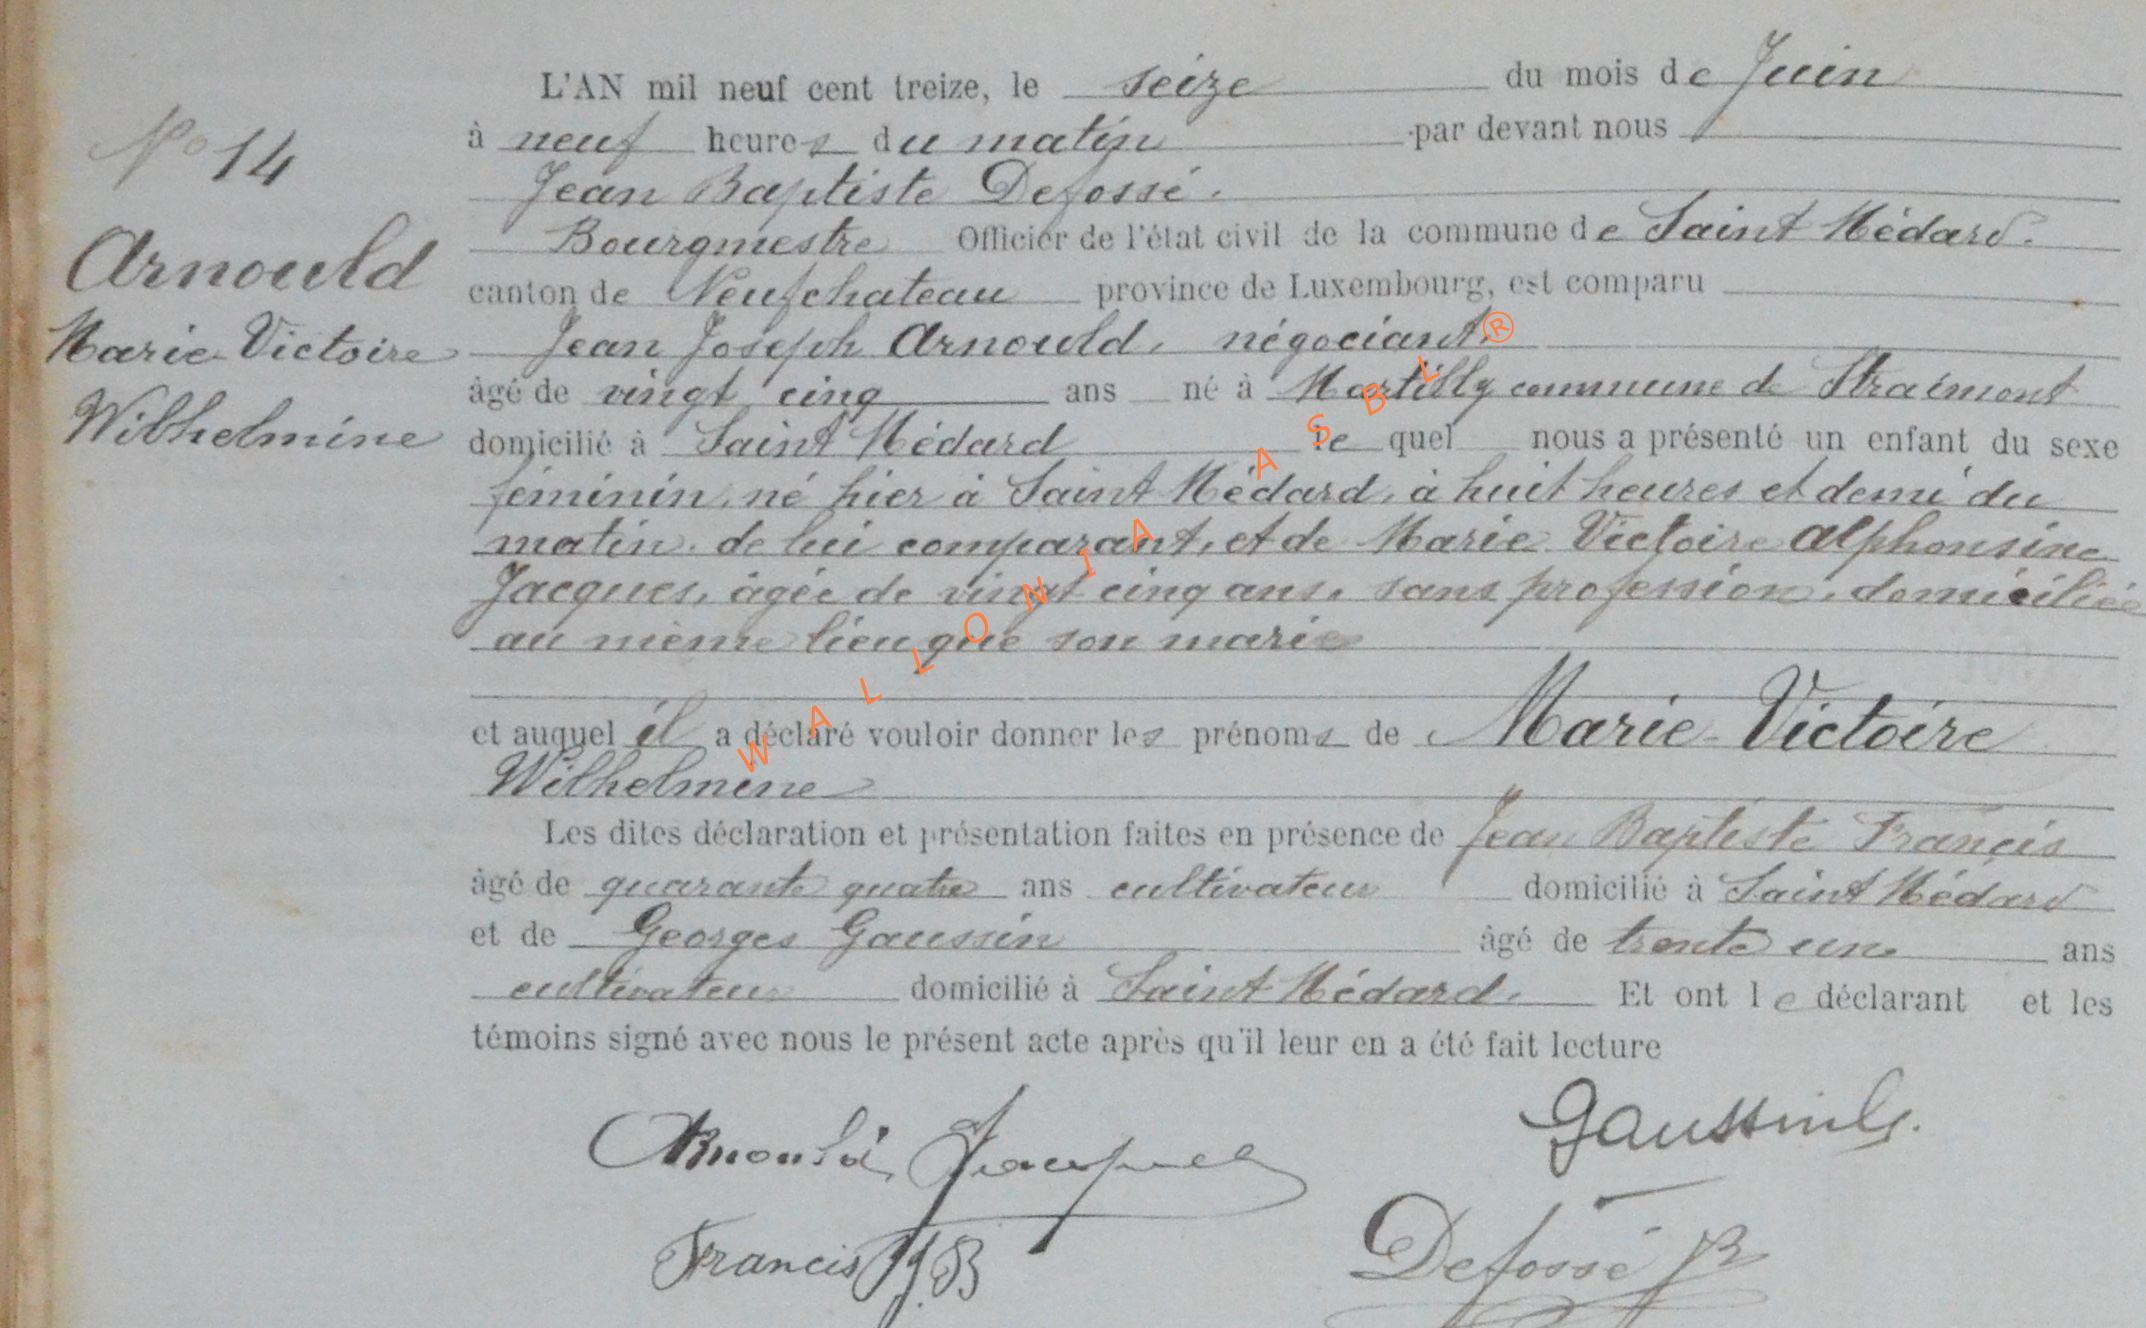 L'AN mil neuf cent treize, le seize du mois de Juin
à neuf heures du matin par devant nous
Jean Baptiste Defossé.
Bourgmestre Officier de l'état civil de la commune de Saint Médard.
canton de Neufchateau province de Luxembourg, est comparu
Jean Joseph Arnould, négociant
âgé de vingt cinq ans né à Martilly commune de Straimont
domicilié à Saint Médard le quel nous a présenté un enfant du sexe
féminin, né hier à Saint Médard, à huit heures et demi du
matin, de lui comparant, et de Marie Victoire Alphonsine
Jacques, âgée de vingt cinq ans, sans profession, domiciliée
au même lieu que son mari
et auquel il a déclaré vouloir donner les prénoms de Marie-Victoire
Wilhelmine
Les dites déclaration et présentation faites en présence de Jean Baptiste Francis
âgé de quarante quatre ans cultivateur domicilié à Saint Médard
et de Georges Gaussin âgé de trente un ans
cultivateur domicilié à Saint Médard. Et ont le déclarant et les
témoins signé avec nous le présent acte après qu'il leur en a été fait lecture
No 14
Arnould
Marie-Victoire
Wilhelmine
Arnould Jacques
Gaussin G.
Francis J.B
Defossé JB
WALLONIA ASBL®